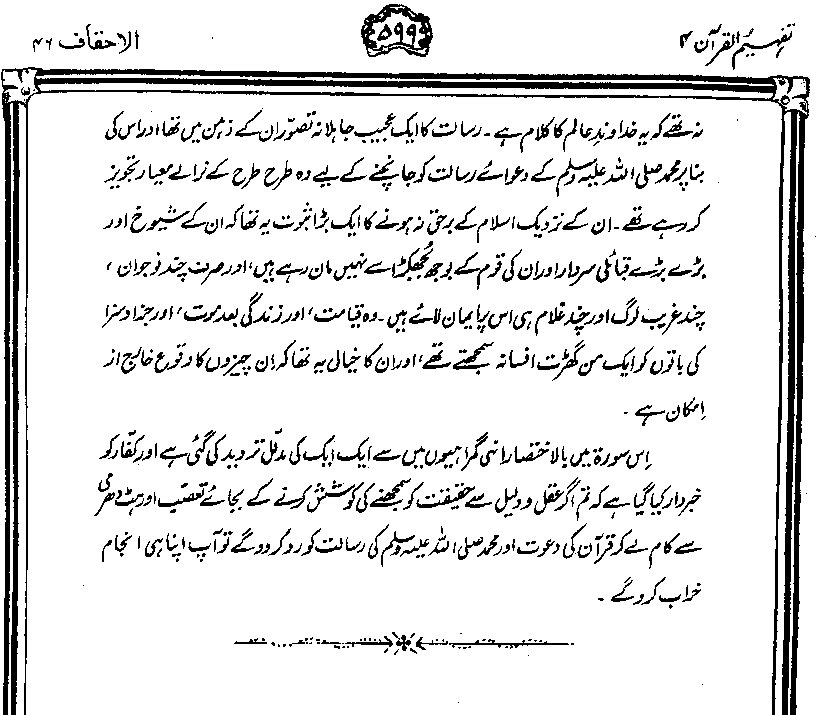 تفہیم القرآن ۴
۵۹۹
الاحقاف ۴۶
نہ تھے کہ یہ خداوندِ عالم کا کلام ہے۔ رسالت کا ایک عجیب جاہلانہ تصوّر ان کے ذہن میں تھا اور اس کی
بنا پر محمد صلی اللہ علیہ وسلم کے دعوائے رسالت کو جانچنے کے لیے وہ طرح طرح کے نرالے معیار تجویز
کر رہے تھے۔ ان کے نزدیک اسلام کے برحق نہ ہونے کا ایک بڑا ثبوت یہ تھا کہ ان کے شیوخ اور
بڑے بڑے قبائلی سردار اور ان کی قوم کے بوجھ بُجھکڑ اسے نہیں مان رہے ہیں، اور صرف چند نوجوان،
چند غریب لوگ اور چند غلام ہی اس پر ایمان لائے ہیں۔ وہ قیامت، اور زندگی بعد موت، اور جزا و سزا
کی باتوں کو ایک من گھڑت افسانہ سمجھتے تھے، اور ان کا خیال یہ تھا کہ اِن چیزوں کا وقوع خارج از
اِمکان ہے۔
اِس سورۃ میں بالاختصار انہی گمراہیوں میں سے ایک ایک کی مدلّل تردید کی گئی ہے اور کفّار کو
خبردار کیا گیا ہے کہ تم اگر عقل و دلیل سے حقیقت کو سمجھنے کی کوشش کرنے کے بجائے تعصّب اور ہٹ دھرمی
سے کام لے کر قرآن کی دعوت اور محمد صلی اللہ علیہ وسلم کی رسالت کو رد کر دو گے تو آپ اپنا ہی انجام
خراب کرو گے۔